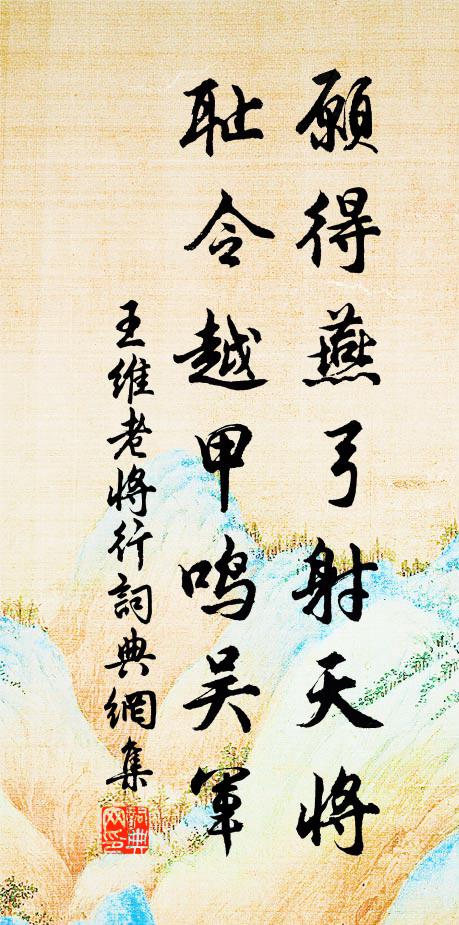 願得燕弓射天將
耻令越甲鳴吴軍
王維老將行詞典網集
詞典網印